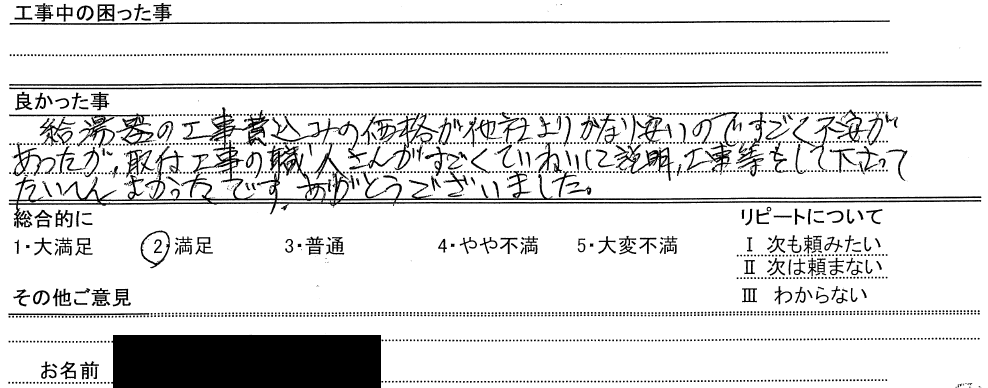 工事中の困った事
良かった事
給湯器の工事費込みの価格が他社よりかなり安いのですごく不安が
あったが、取付工事の職人さんがすごくていねいに説明,工事等をして下さって
たいへんよかったです。ありがとうございました。
総合的に
リピートについて
1・大満足 2・満足 3・普通 4・やや不満 5・大変不満
Ⅰ 次も頼みたい
Ⅱ 次は頼まない
その他ご意見
Ⅲ わからない
お名前